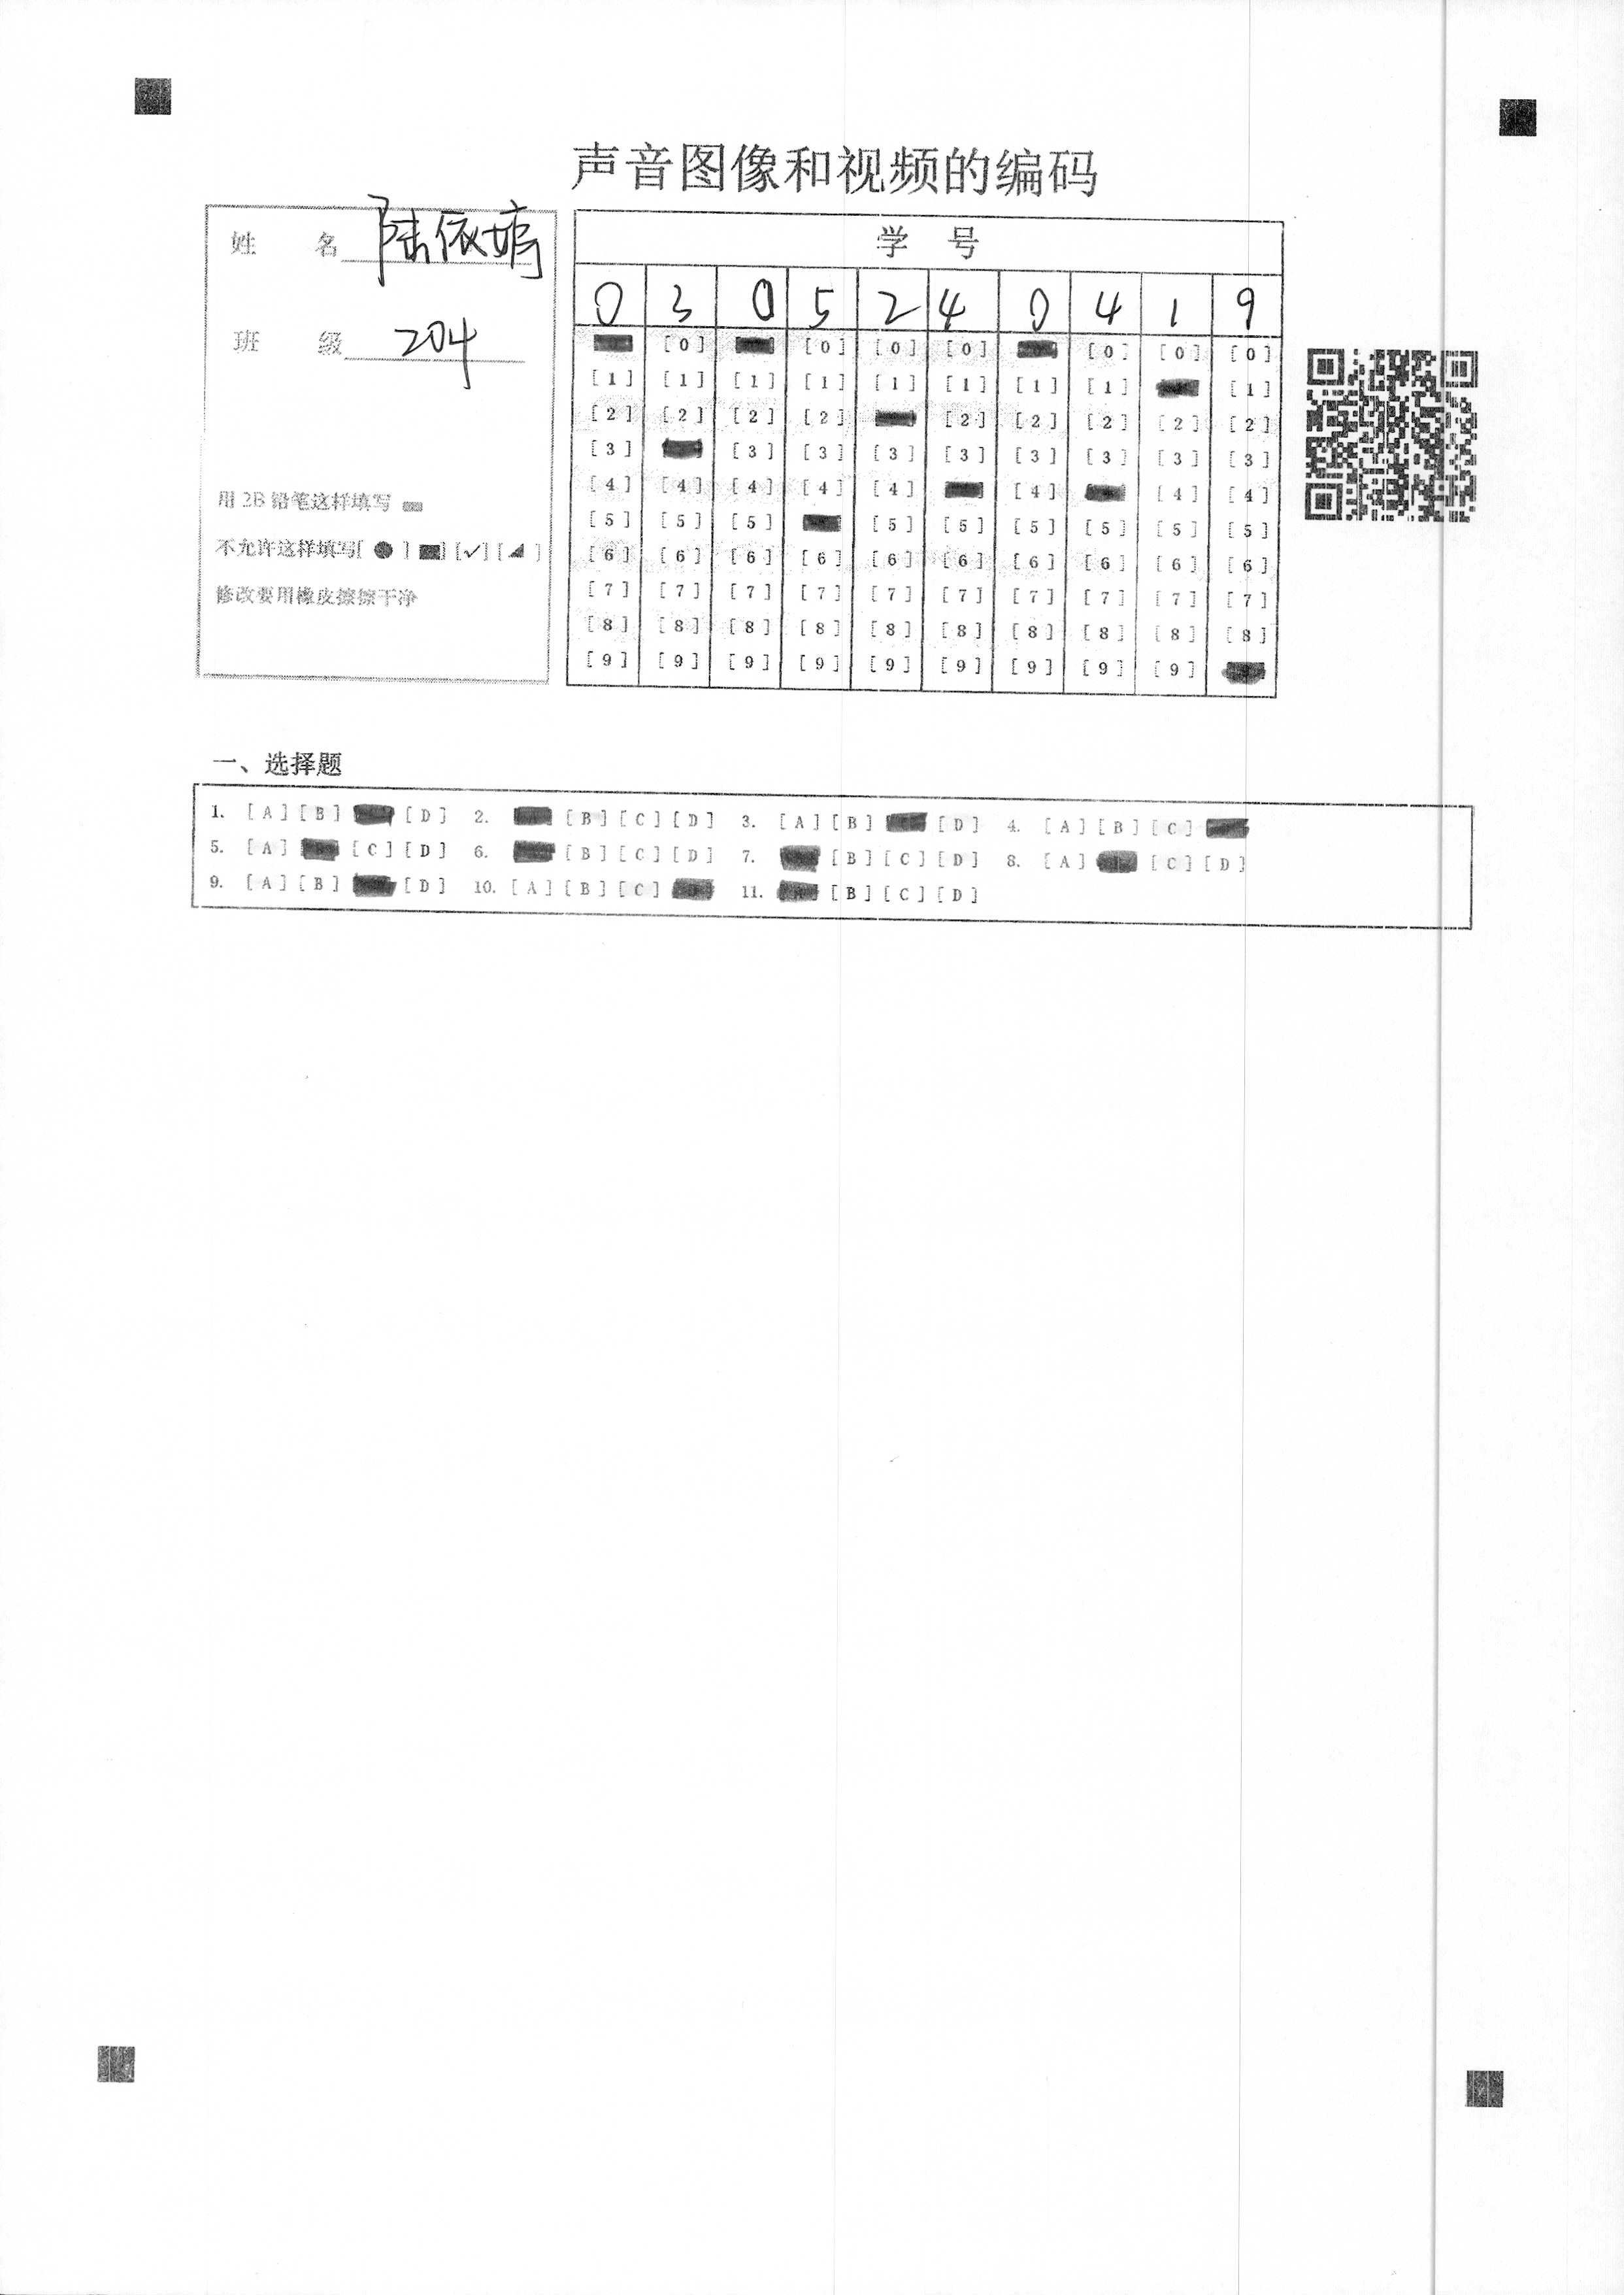 声音图像和视频的编码
姓 名 陆依婷
班 级 204
用 2B 铅笔这样填写
不允许这样填写[ ● ] ■] [✓] [◢ ]
修改要用橡皮擦擦干净
学 号
0 3 0 5 2 4 0 4 1 9
[0] [0] [0] [0] [0] [0] [0]
[1] [1] [1] [1] [1] [1] [1] [1] [1]
[2] [2] [2] [2] [2] [2] [2] [2] [2]
[3] [3] [3] [3] [3] [3] [3] [3] [3]
[4] [4] [4] [4] [4] [4] [4] [4]
[5] [5] [5] [5] [5] [5] [5] [5] [5]
[6] [6] [6] [6] [6] [6] [6] [6] [6] [6]
[7] [7] [7] [7] [7] [7] [7] [7] [7] [7]
[8] [8] [8] [8] [8] [8] [8] [8] [8] [8]
[9] [9] [9] [9] [9] [9] [9] [9] [9]
一、选择题
1. [A] [B] [D] 2. [B] [C] [D] 3. [A] [B] [D] 4. [A] [B] [C]
5. [A] [C] [D] 6. [B] [C] [D] 7. [B] [C] [D] 8. [A] [C] [D]
9. [A] [B] [D] 10. [A] [B] [C] 11. [B] [C] [D]